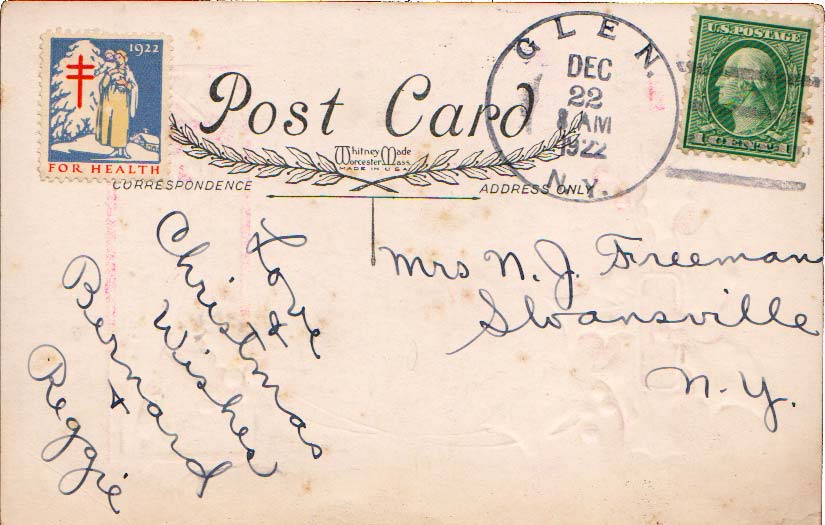 1922
FOR HEALTH
Post Card
Whitney Made
Worcester Mass
MADE IN U.S.A.
CORRESPONDENCE
ADDRESS ONLY
GLEN.
DEC
22
AM
1922
N.Y.
U.S. POSTAGE
1 CENT 1
Love
&
Christmas
Wishes
Bernard
&
Reggie
Mrs N. J. Freeman
Sloansville
N.Y.